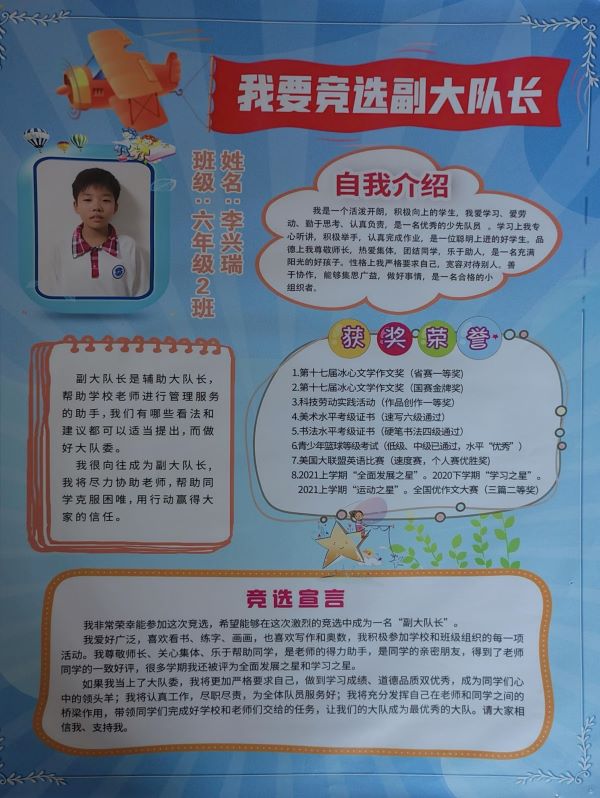 我要竞选副大队长
姓名：李兴瑞
班级：六年级2班
自我介绍
我是一个活泼开朗，积极向上的学生，我爱学习、爱劳
动、勤于思考、认真负责，是一名优秀的少先队员 。学习上我专
心听讲，积极举手，认真完成作业，是一位聪明上进的好学生。品
德上我尊敬师长，热爱集体，团结同学，乐于助人，是一名充满
阳光的好孩子。性格上我严格要求自己，宽容对待别人。善
于协作，能够集思广益，做好事情，是一名合格的小
组织者。
副大队长是辅助大队长，
帮助学校老师进行管理服务
的助手，我们有哪些看法和
建议都可以适当提出，而做
好大队委。
我很向往成为副大队长，
我将尽力协助老师，帮助同
学克服困难，用行动赢得大
家的信任。
获奖荣誉
1.第十七届冰心文学作文奖（省赛一等奖）
2.第十七届冰心文学作文奖（国赛金牌奖）
3.科技劳动实践活动（作品创作一等奖）
4.美术水平考级证书（速写六级通过）
5.书法水平考级证书（硬笔书法四级通过）
6.青少年篮球等级考试（低级、中级已通过，水平“优秀”）
7.美国大联盟英语比赛（速度赛，个人赛优胜奖）
8.2021上学期“全面发展之星”。2020下学期“学习之星”。
2021上学期“运动之星”。全国优作文大赛（三篇二等奖）
竞选宣言
我非常荣幸能参加这次竞选，希望能够在这次激烈的竞选中成为一名“副大队长”。
我爱好广泛，喜欢看书、练字、画画，也喜欢写作和奥数，我积极参加学校和班级组织的每一项
活动。我尊敬师长、关心集体、乐于帮助同学，是老师的得力助手，是同学的亲密朋友，得到了老师
同学的一致好评，很多学期我还被评为全面发展之星和学习之星。
如果我当上了大队委，我将更加严格要求自己，做到学习成绩、道德品质双优秀，成为同学们心
中的领头羊；我将认真工作，尽职尽责，为全体队员服务好；我将充分发挥自己在老师和同学之间的
桥梁作用，带领同学们完成好学校和老师们交给的任务，让我们的大队成为最优秀的大队。请大家相
信我、支持我。